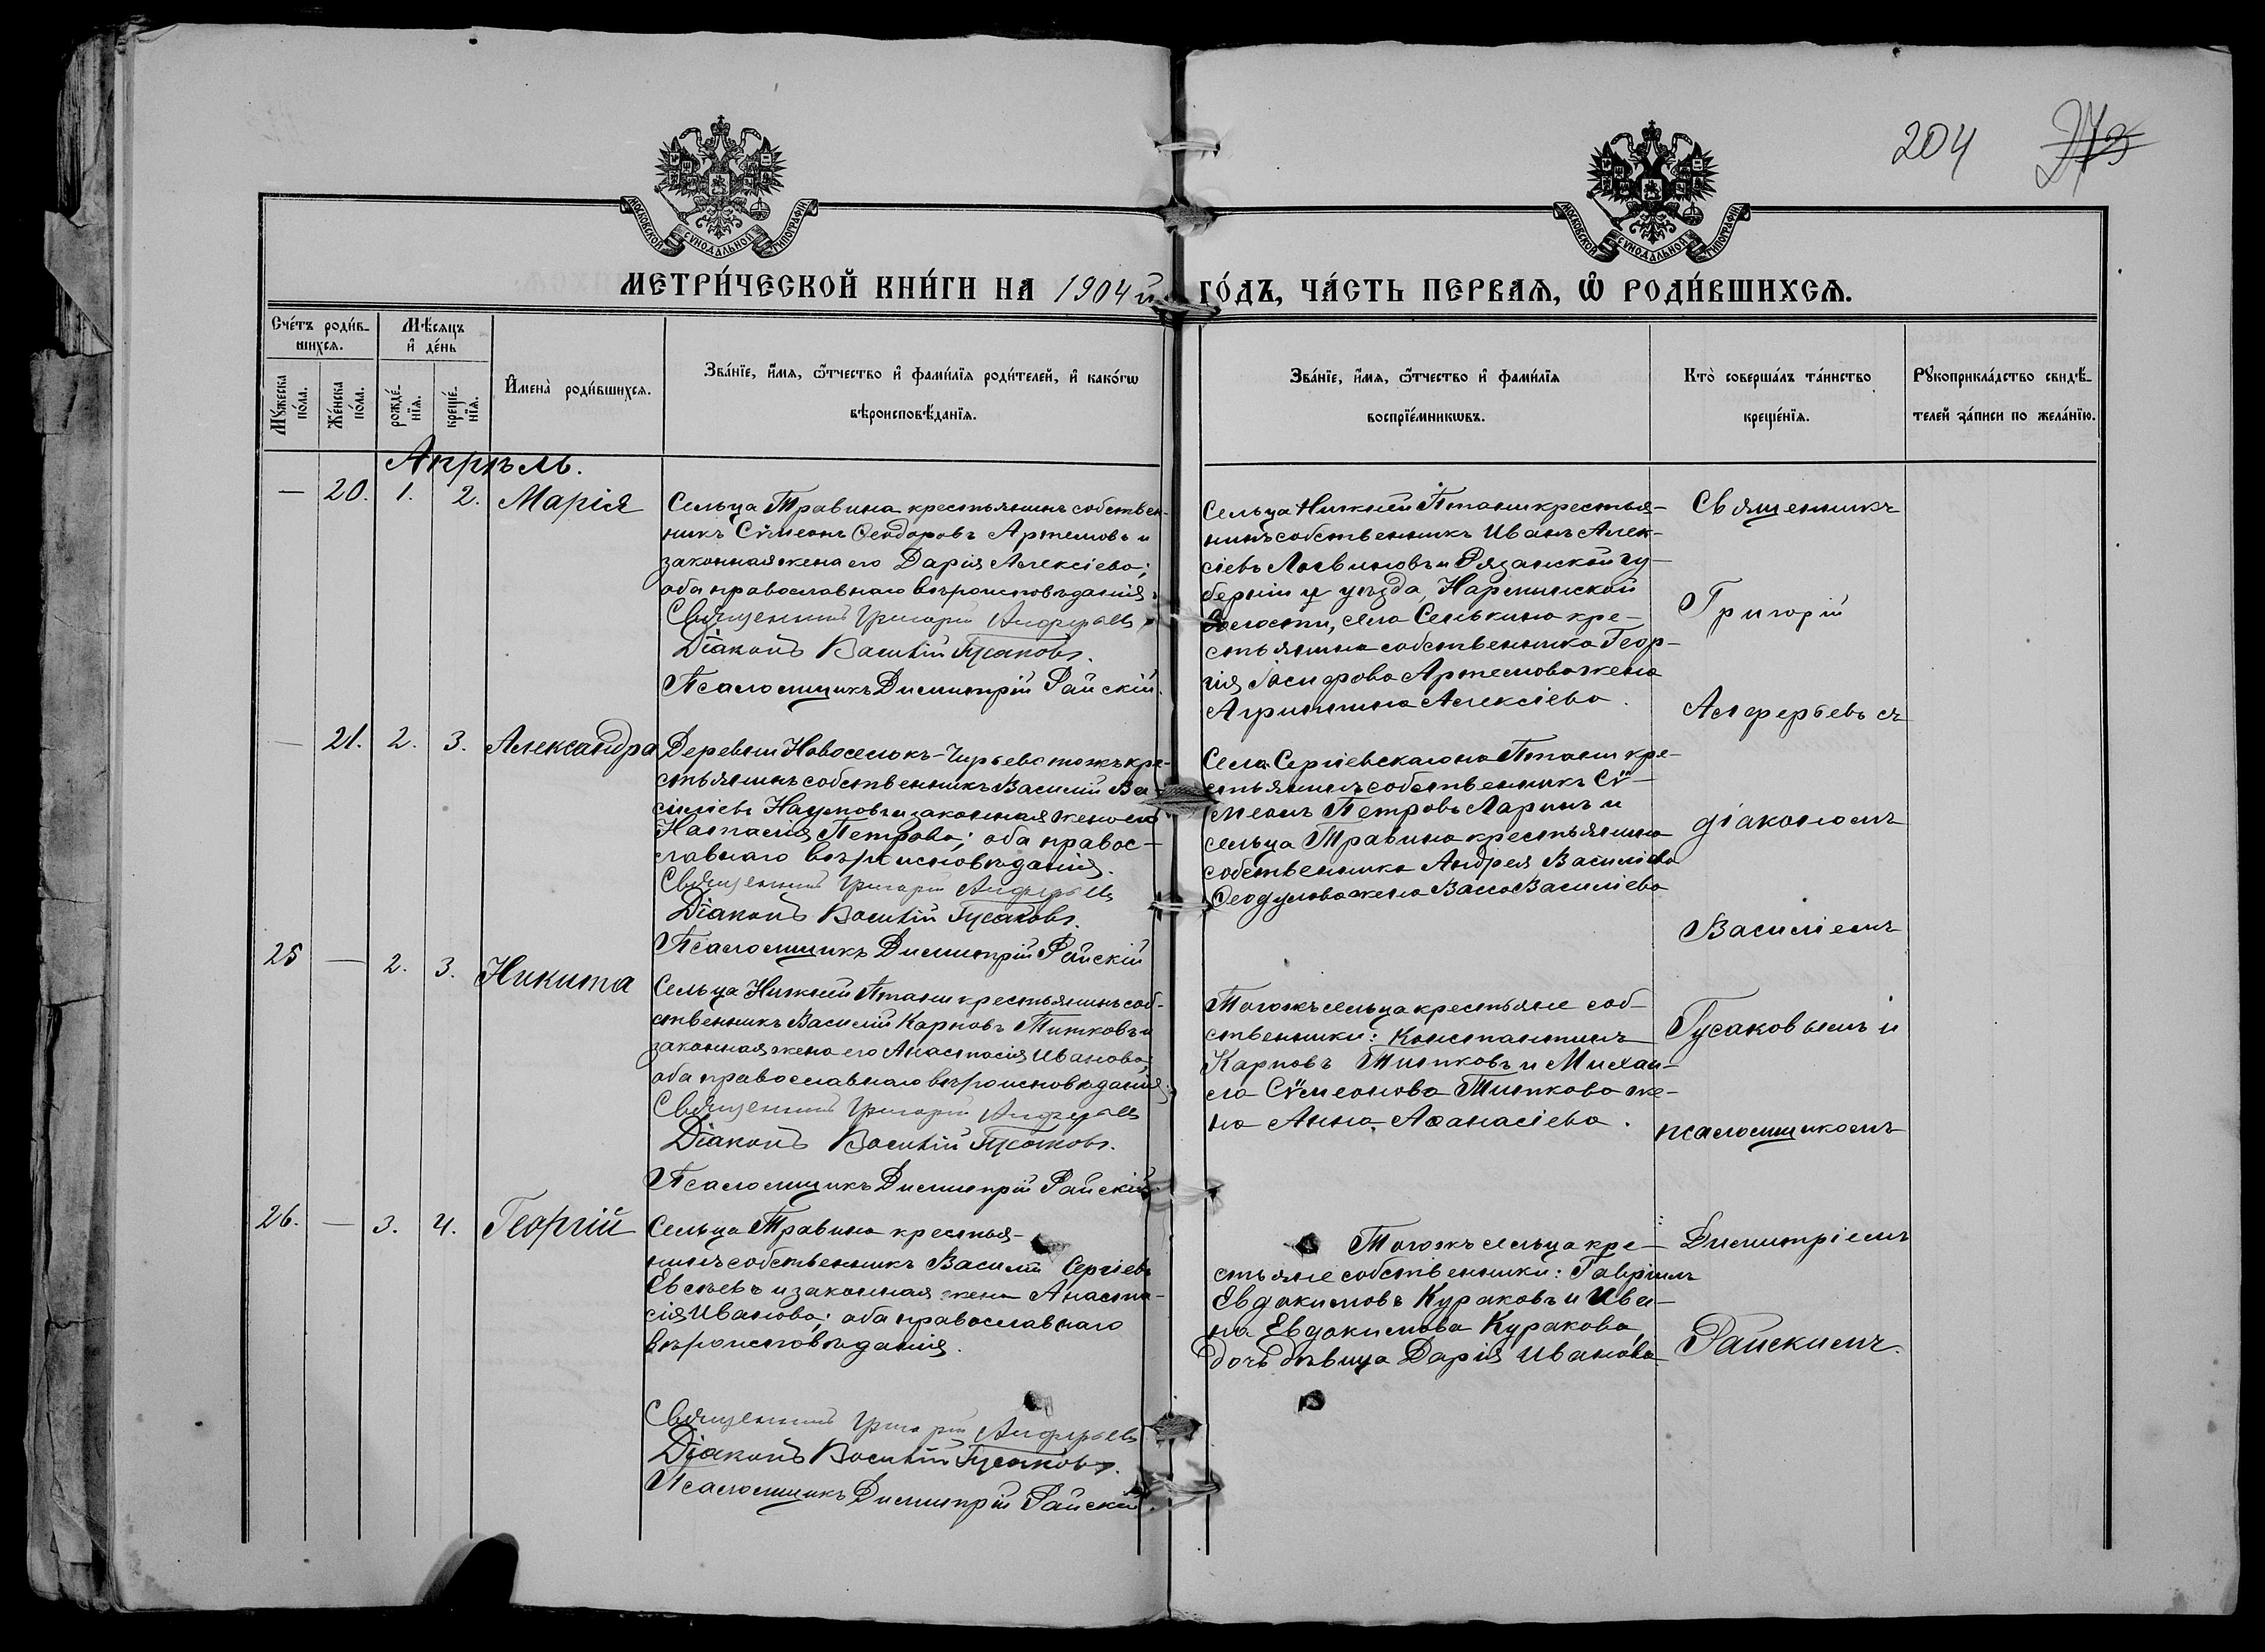 204 273
МОСКОВСКОЙ СѴНОДАЛЬНОЙ ТИПОГРАФІИ
МОСКОВСКОЙ СѴНОДАЛЬНОЙ ТИПОГРАФІИ
МЕТРИ́ЧЕСКОЙ КНИ́ГИ НА 1904й ГО́ДЪ, ЧА́СТЬ ПЕРВАѦ, Ѡ҆ РОДИ́ВШИХСѦ.
Сче́тъ роди́в-
шихсѧ.
Мѣ́сѧцъ
и҆ де́нь
Мꙋ́жеска
по́ла.
Же́нска
по́ла.
рожде́-
нїѧ.
креще́-
нїѧ.
И҆мена̀ роди́вшихсѧ.
Зва́нїе, и҆́мѧ, ѻ҆́тчество и҆ фами́лїѧ роди́телей, и҆ како́гѡ
вѣроисповѣ́данїѧ.
Зва́нїе, и҆́мѧ, ѻ҆́тчество и҆ фами́лїѧ
воспрїе́мникѡвъ.
Кто̀ соверша́лъ та́инство
креще́нїѧ.
Рꙋкоприкла́дство свидѣ́-
телей за́писи по жела́нїю.
Апрѣль.
— 20. 1. 2. Марія
Сельца Травина крестьянинъ собствен-
никъ Сѵмеонъ Ѳеодоровъ Артемовъ и
законная жена его Дарія Алексіева;
оба православнаго вѣроисповѣданія.
Священникъ Григорій Алферьевъ
Діаконъ Василій Гусаковъ.
Псаломщикъ Димитрій Райскій.
Сельца Нижней Птани крестья-
нинъ собственникъ Иванъ Алек-
сіевъ Логвиновъ и Рязанской гу-
берніи и уѣзда,
Волости, села Селькина кре-
стьянина собственника Геор-
гія Іосифова Артемова жена
Агриппина Алексіева.
Священникъ
Григорій
Алферьевъ съ
діакономъ
Василіемъ
Гусаковымъ и
псаломщикомъ
Димитріемъ
Райскимъ.
— 21. 2. 3. Александра
Деревни Новоселокъ-Чурьево тожъ кре-
стьянинъ собственникъ Василій Ва-
силіевъ Наумовъ и законная жена его
Наталія Петрова; оба правос-
лавнаго вѣроисповѣданія.
Священникъ Григорій Алферьевъ
Діаконъ Василій Гусаковъ.
Псаломщикъ Димитрій Райскій
Села Сергіевскаго на Птани кре-
стьянинъ собственникъ Сѵ-
меонъ Петровъ Ларинъ и
сельца Травина крестьянина
собственника Андрея Василіева
Ѳеодулова жена Васса Василіева
25 — 2. 3. Никита
Сельца Нижней Птани крестьянинъ соб-
ственникъ Василій Карповъ Титковъ и
законная жена его Анастасія Иванова;
оба православнаго вѣроисповѣданія.
Священникъ Григорій Алферьевъ
Діаконъ Василій Гусаковъ.
Псаломщикъ Димитрій Райскій.
Тогожъ сельца крестьяне соб-
ственники: Константинъ
Карповъ Титковъ и Михаи-
ла Сѵмеонова Титкова же-
на Анна Аѳанасіева.
26. — 3. 4. Георгій
Сельца Травина крестья-
нинъ собственникъ Василій Сергіевъ
Евсѣевъ и законная жена Анаста-
сія Иванова; оба православнаго
вѣроисповѣданія.
Священникъ Григорій Алферьевъ
Діаконъ Василій Гусаковъ.
Псаломщикъ Димитрій Райскій.
Тогожъ сельца кре-
стьяне собственники: Гавріилъ
Евдокимовъ Кураковъ и Ива-
на Евдокимова Куракова,
дочь дѣвица Дарія Иванова